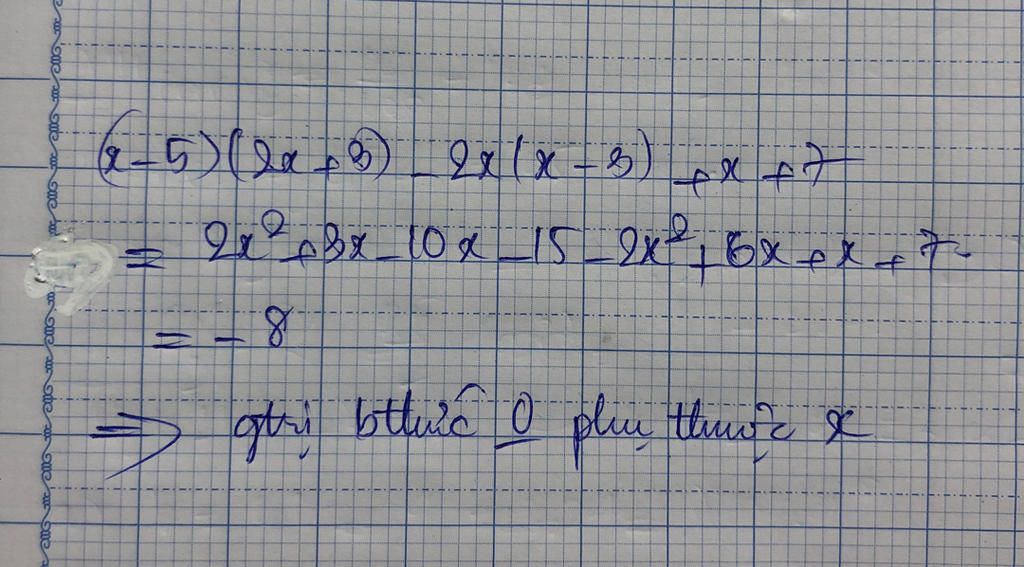 (x-5)(2x+3)-2x(x-3)+x+7
= 2x²+3x-10x-15-2x²+6x+x+7
= -8
⇒ gtrị bthức 0 phụ thuộc x